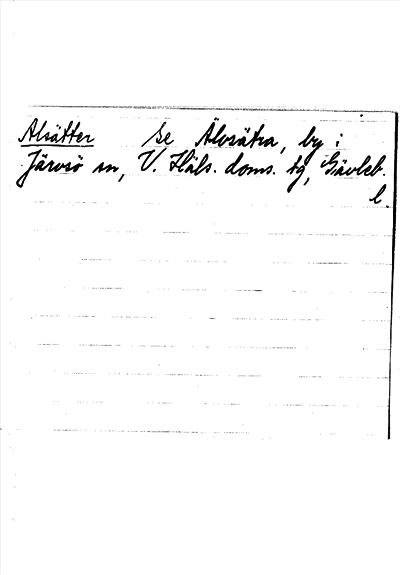 Alsätter se Älvsätra, by i
Järvsö sn, V. Häls. doms. tg, Gävleb.
l.